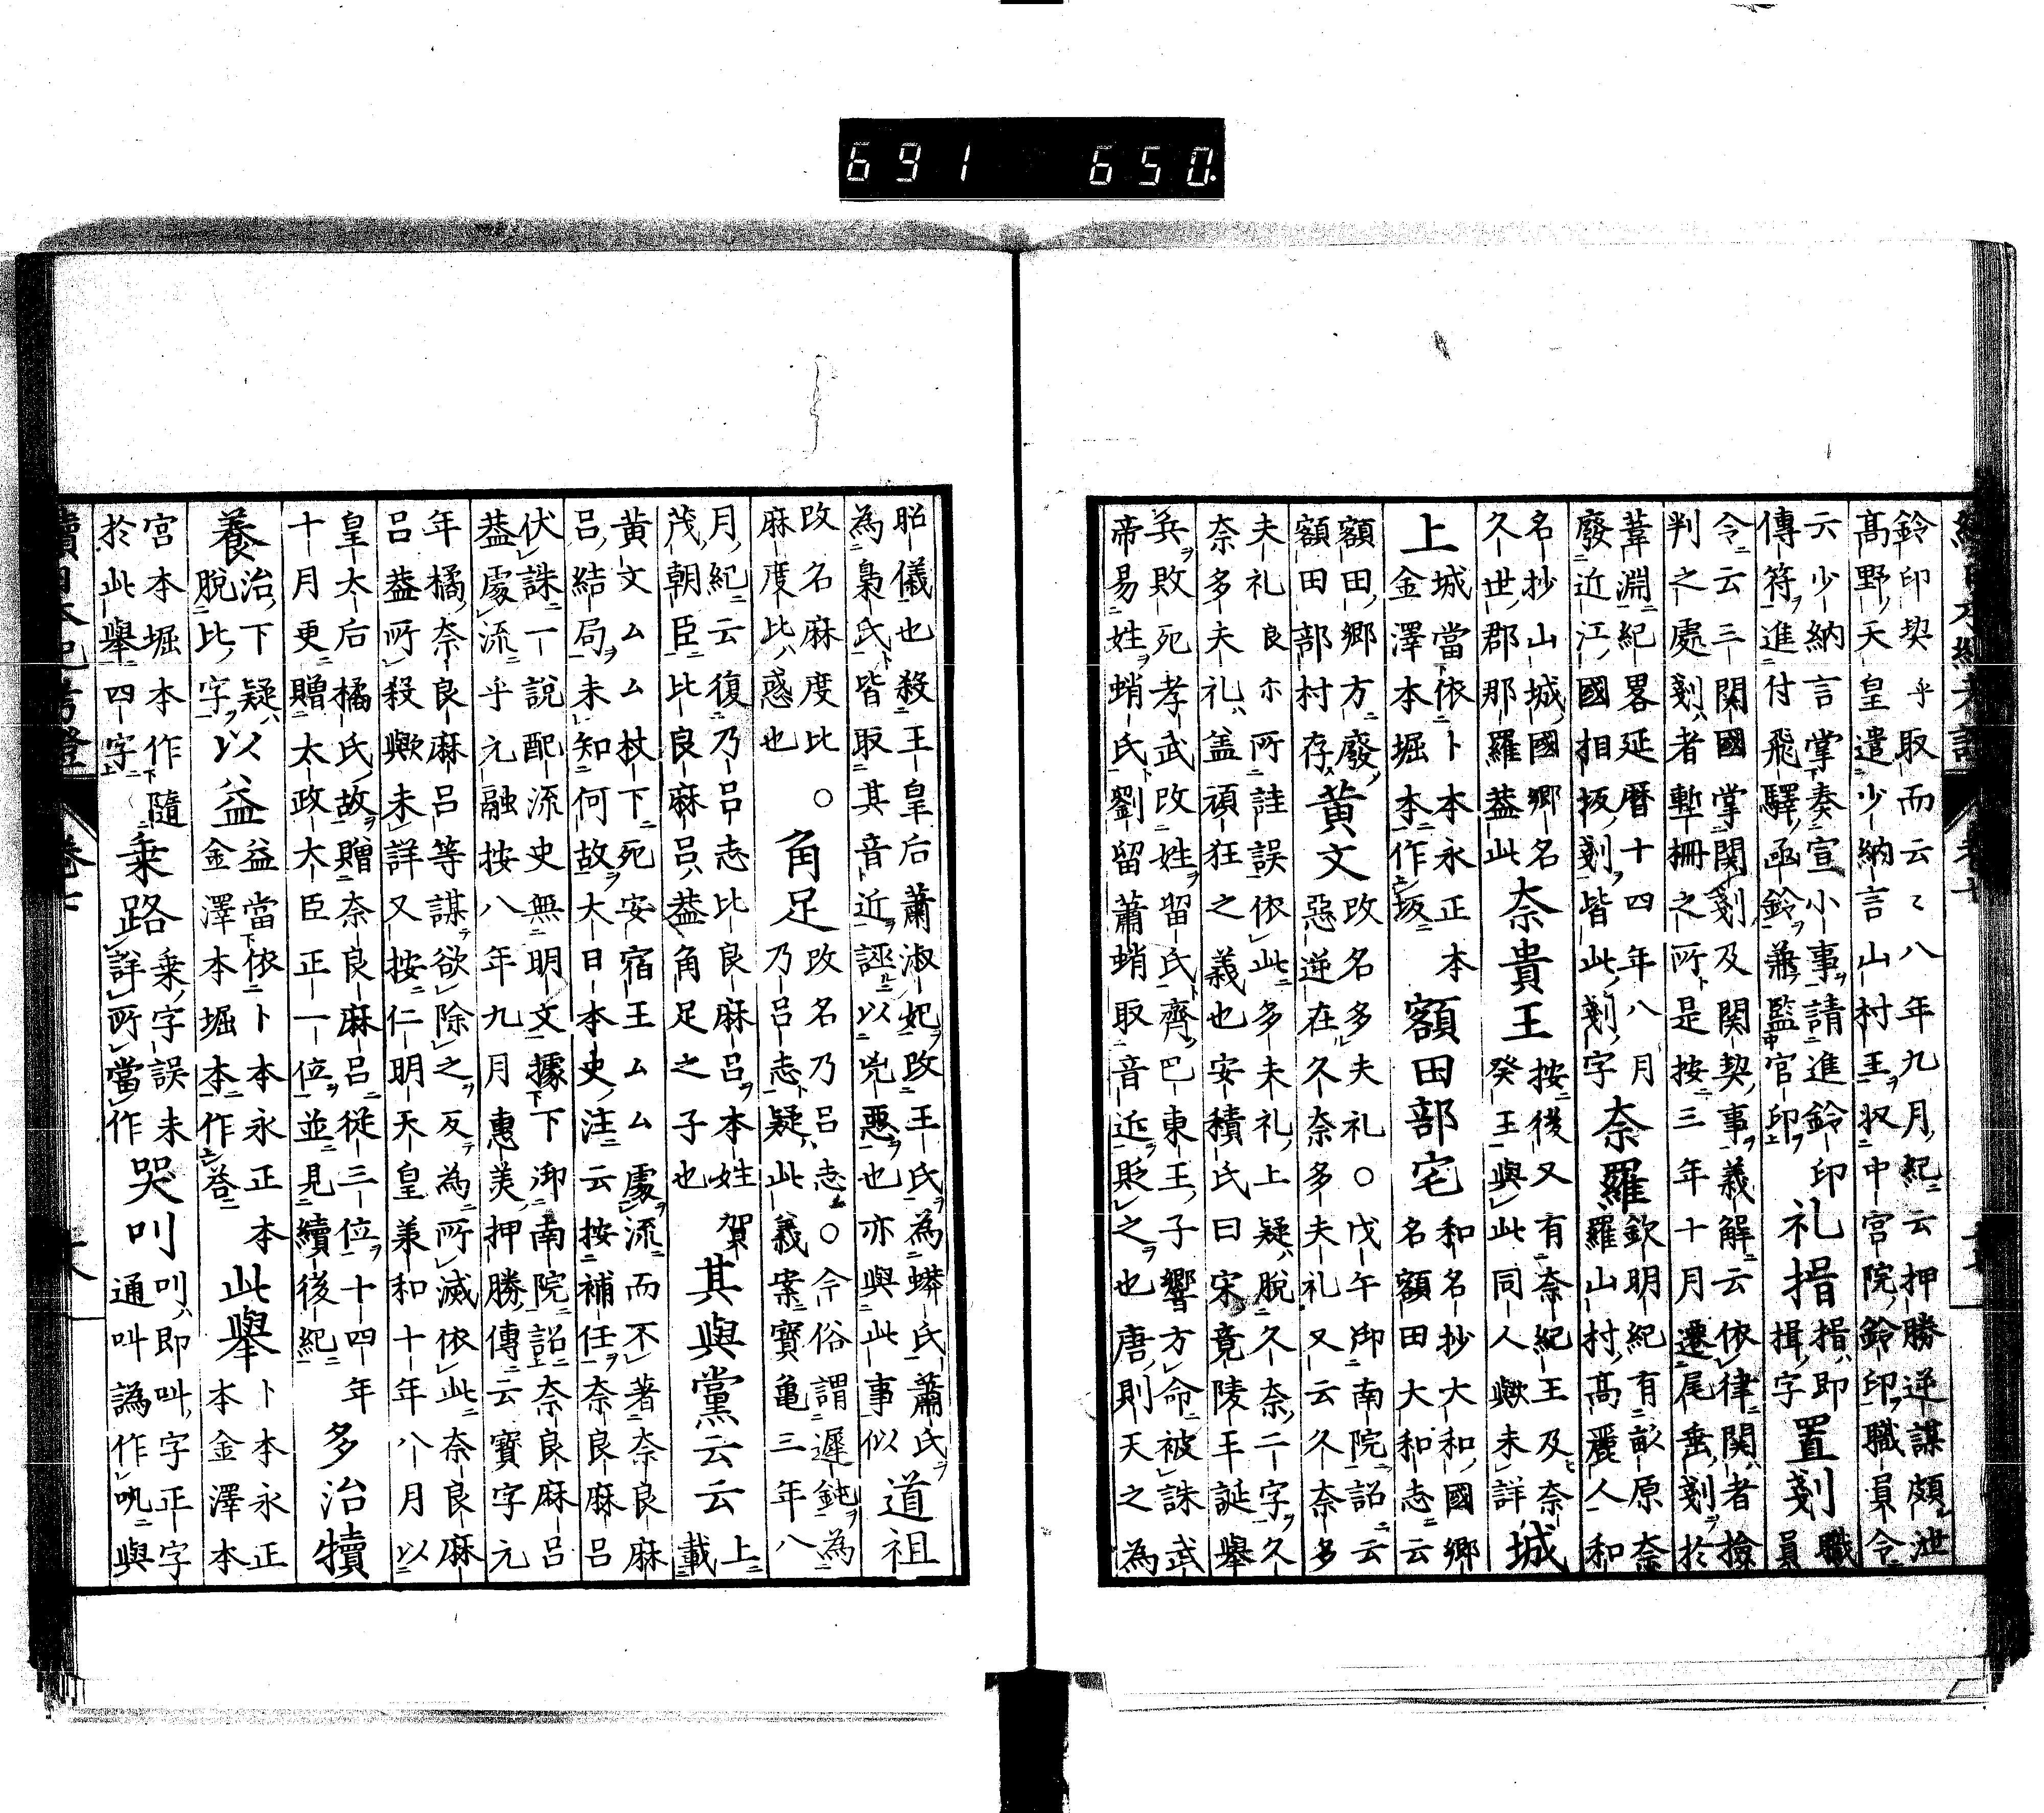 鈴印契乎取而云々八年九月紀云押勝逆謀頗泄
高野天皇遣少納言山村王収中宮院鈴印職員令
云少納言掌奏宣小事請進鈴印
傳符進付飛驛函鈴兼監官印
礼揩
揩即
揖字
置剗
職
員
令云三関國掌関剗及関契事義解云依律関者撿
判之處剗者塹柵之所是按三年十月遷尾垂剗於
葦淵紀畧延暦十四年八月
廢近江國相坂剗皆此剗字
奈羅
欽明紀有畝原奈
羅山村高麗人和
名抄山城國郷名
久世郡那羅葢此
奈貴王
按後又有奈紀王及奈
癸王與此同人歟未詳
城
上
城當依卜本永正本
金澤本堀本作坂
額田部宅
和名抄大和國郷
名額田大和志云
額田郷方廢
額田部村存
黄文
改名多夫礼○戊午御南院詔云
惡逆在久奈多夫礼又云久奈多
夫礼良尓所詿誤依此多未礼上疑脱久奈二字久
奈多夫礼盖頑狂之義也安積氏曰宋竟陵王誕舉
兵敗死孝武改姓留氏齊巴東王子響方命被誅武
帝易姓蛸氏劉留蕭蛸取音近貶之也唐則天之為
昭儀也殺王皇后蕭淑妃改王氏為蟒氏蕭氏
為梟氏皆取其音近誣以兇惡也亦與此事似
道祖
改名麻度比
麻度比惑也
○角足
改名乃呂志○今俗謂遲鈍為
乃呂志疑此義案寶亀三年八
月紀云復乃呂志比良麻呂本姓賀
茂朝臣比良麻呂葢角足之子也
其與黨云云
上
載
黄文ムム杖下死安宿王ムム處流而不著奈良麻
呂結局未知何故大日本史注云按補任奈良麻呂
伏誅一説配流史無明文據下御南院詔奈良麻呂
葢處流乎元融按八年九月惠美押勝傳云寶字元
年橘奈良麻呂等謀欲除之反為所滅依此奈良麻
呂葢所殺歟未詳又按仁明天皇兼和十年八月以
皇太后橘氏故贈奈良麻呂從三位十四年
十月更贈太政大臣正一位並見續後紀
多治犢
養
治下疑
脱比字
以益
益當依卜本永正本
金澤本堀本作荅
此舉
卜本永正
本金澤本
宮本堀本作隨
於此舉四字
乗路
乗字誤未
詳所當作
哭叫
叫即叫字正字
通叫譌作吪與
續日本紀考證
卷七